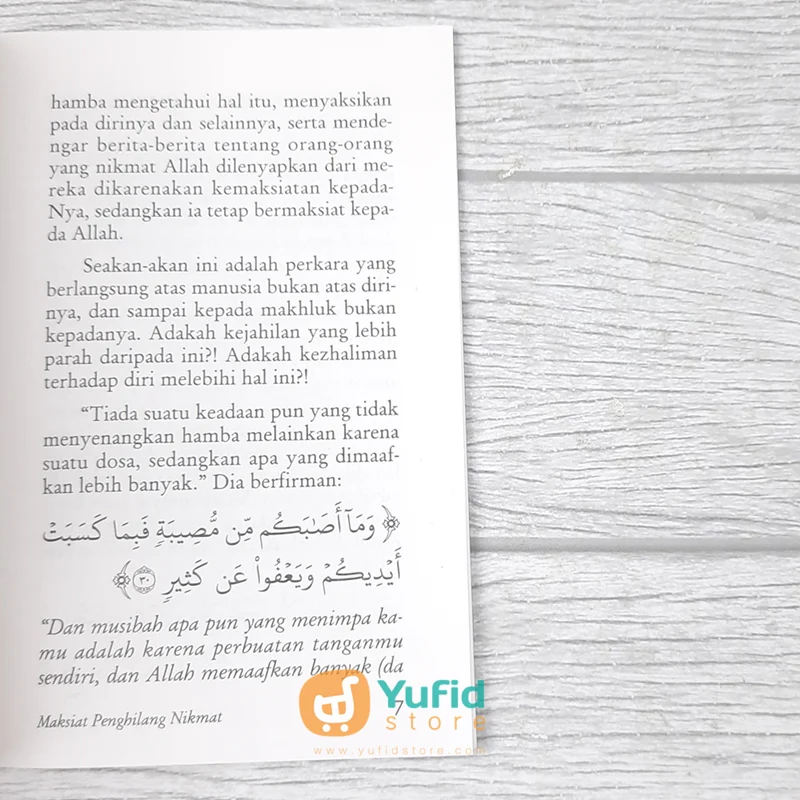 hamba mengetahui hal itu, menyaksikan
pada dirinya dan selainnya, serta mende-
ngar berita-berita tentang orang-orang
yang nikmat Allah dilenyapkan dari me-
reka dikarenakan kemaksiatan kepada-
Nya, sedangkan ia tetap bermaksiat kepa-
da Allah.
Seakan-akan ini adalah perkara yang
berlangsung atas manusia bukan atas diri-
nya, dan sampai kepada makhluk bukan
kepadanya. Adakah kejahilan yang lebih
parah daripada ini?! Adakah kezhaliman
terhadap diri melebihi hal ini?!
“Tiada suatu keadaan pun yang tidak
menyenangkan hamba melainkan karena
suatu dosa, sedangkan apa yang dimaaf-
kan lebih banyak.” Dia berfirman:
﴿ وَمَآ أَصَٰبَكُم مِّن مُّصِيبَةٖ فَبِمَا كَسَبَتۡ
أَيۡدِيكُمۡ وَيَعۡفُواْ عَن كَثِيرٖ ٣٠ ﴾
“Dan musibah apa pun yang menimpa ka-
mu adalah karena perbuatan tanganmu
sendiri, dan Allah memaafkan banyak (da
Maksiat Penghilang Nikmat 7
Yufid
store
www.yufidstore.com